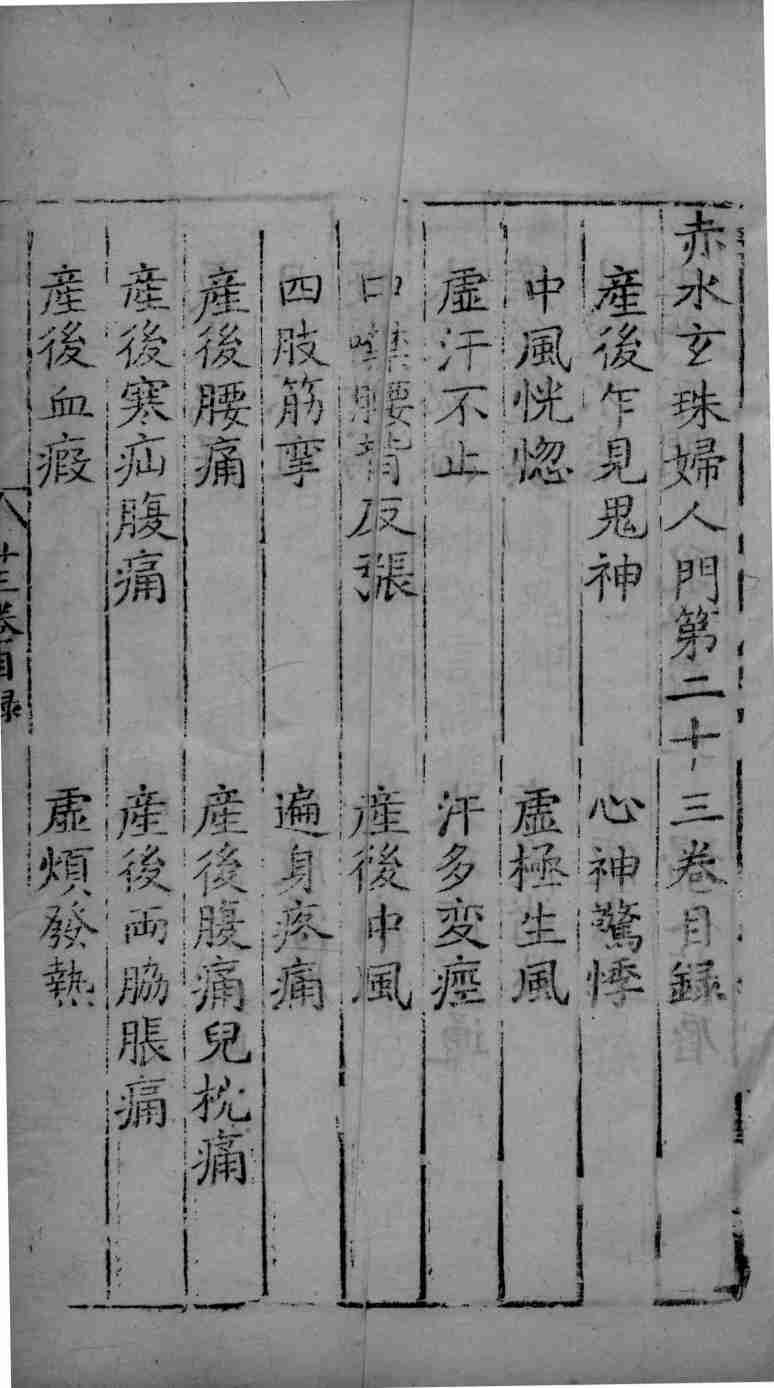 赤水玄珠婦人門第二十三卷目録
産後乍見鬼神　心神驚悸
中風恍惚　虛極生風
虛汗不止　汗多变痙
口噤腰背反張　産後中風
四肢筋攣　遍身疼痛
産後腰痛　産後腹痛兒枕痛
産後寒疝腹痛　産後両脇脹痛
産後血瘕　虛煩發熱
廿三卷目録